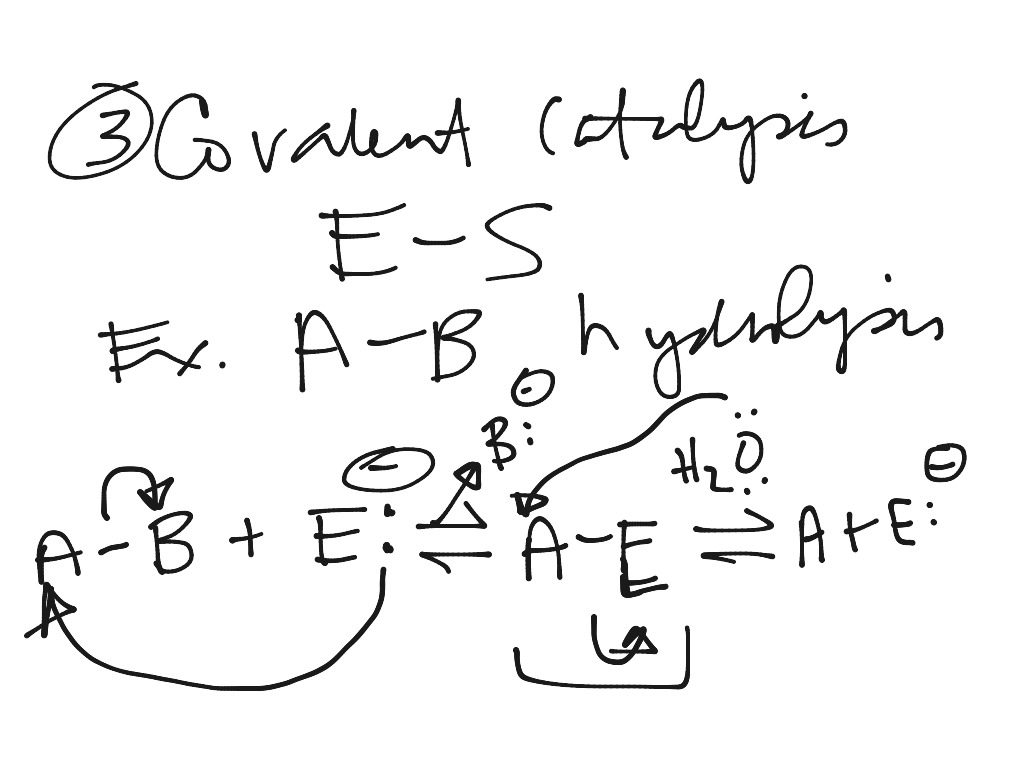 ③ Covalent Catalysis
E – S
Ex. A – B hydrolysis
A – B + E:⊖ ⇌ B:⊖ A – E H₂Ö: ⇌ A + E:⊖